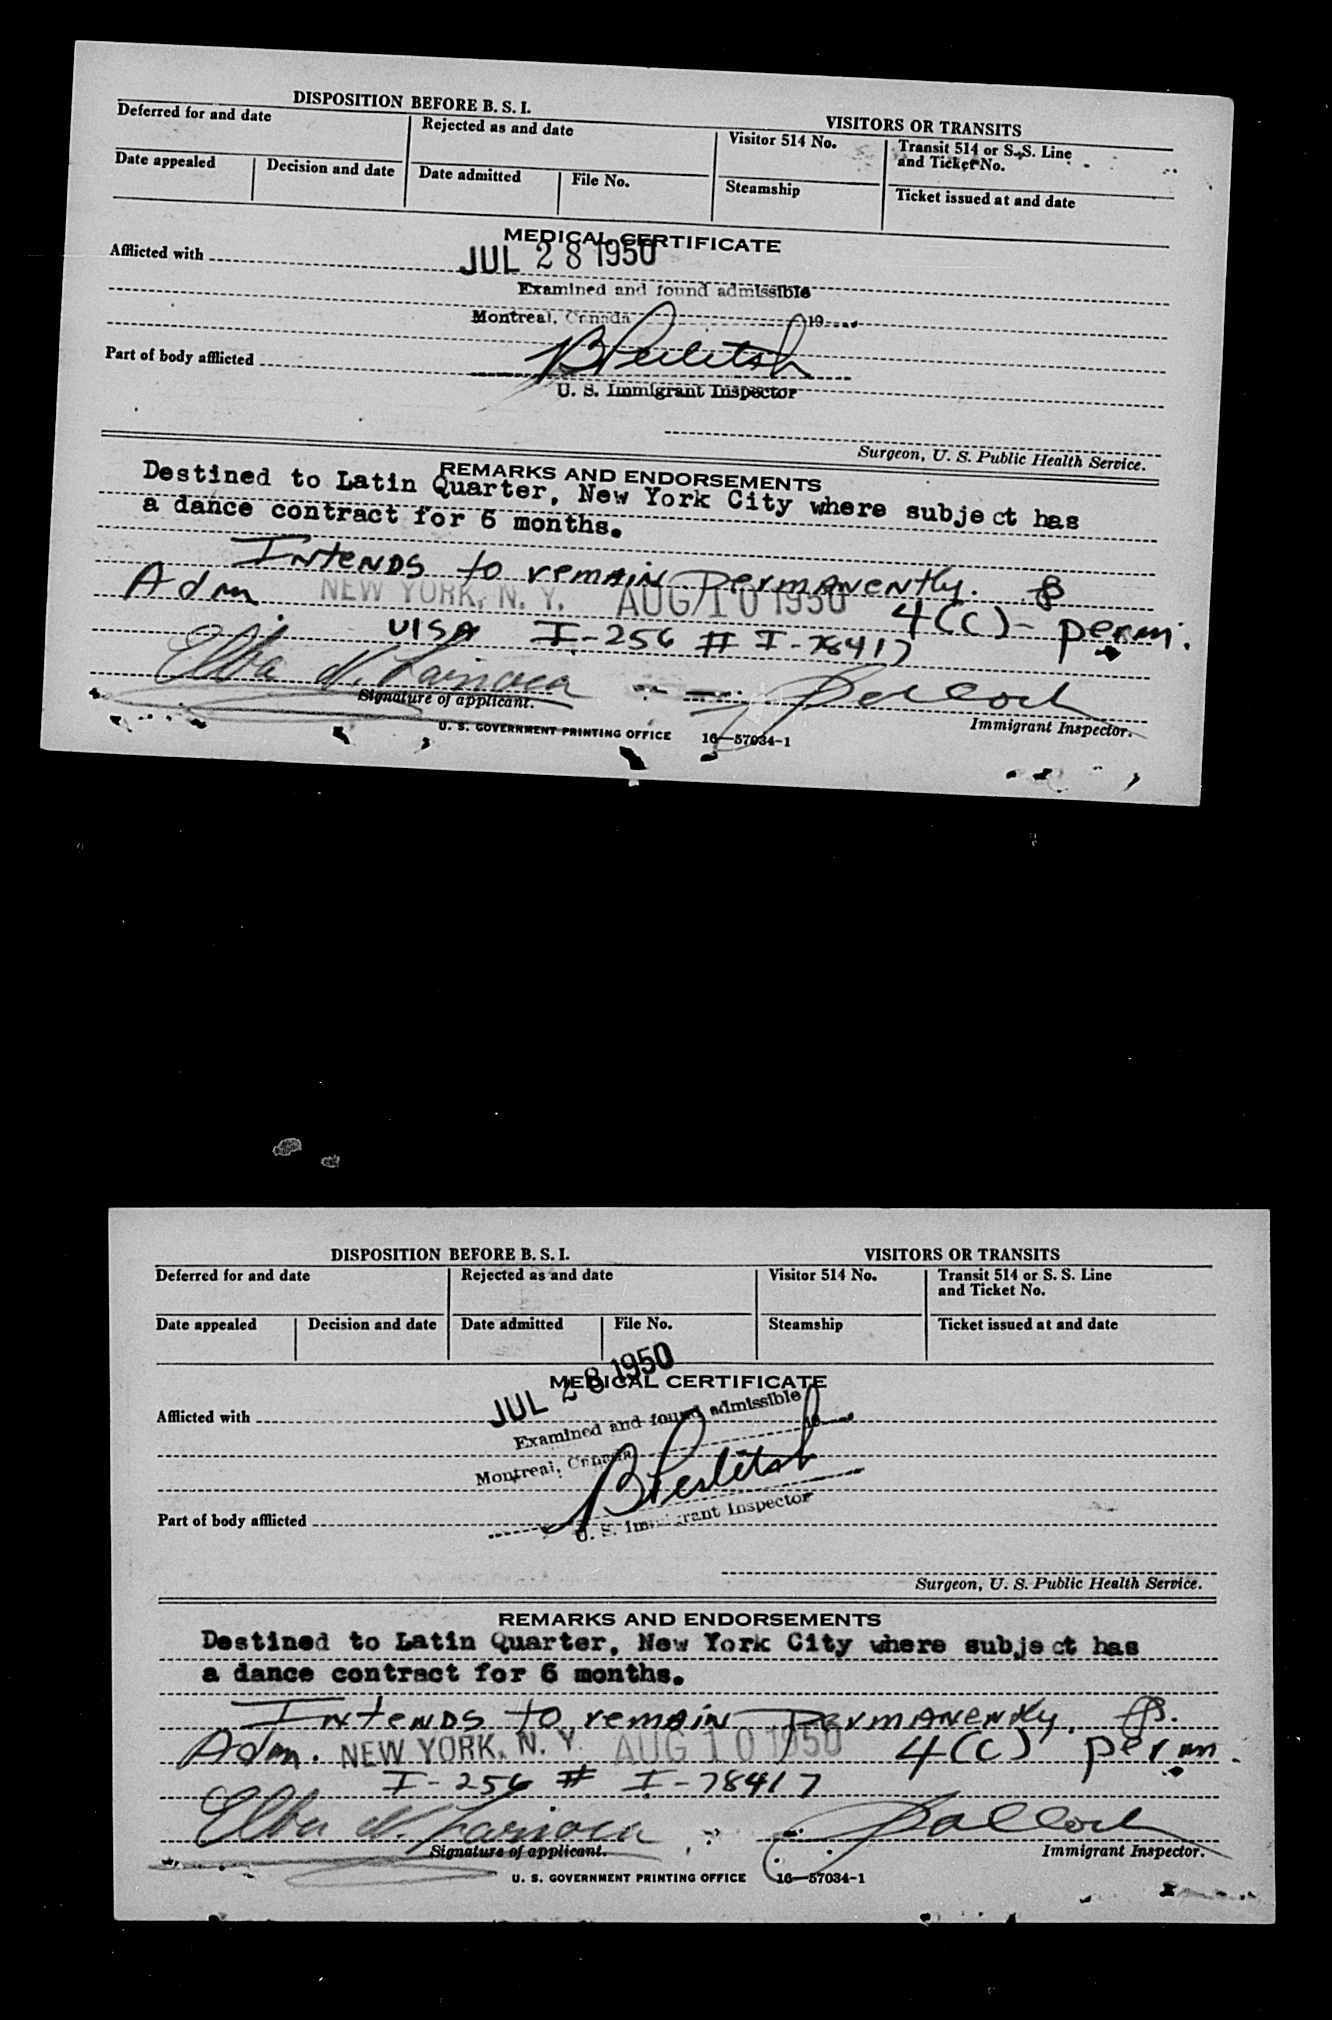 DISPOSITION BEFORE B. S. I.
VISITORS OR TRANSITS
Deferred for and date
Rejected as and date
Visitor 514 No.
Transit 514 or S. S. Line
and Ticket No.
Date appealed
Decision and date
Date admitted
File No.
Steamship
Ticket issued at and date
MEDICAL CERTIFICATE
JUL 28 1950
Afflicted with
Examined and found admissible
Montreal, Canada 19
Part of body afflicted
U. S. Immigrant Inspector
Surgeon, U. S. Public Health Service.
REMARKS AND ENDORSEMENTS
Destined to Latin Quarter, New York City where subject has
a dance contract for 6 months.
Intends to remain permanently.
Adm. NEW YORK, N. Y. AUG 10 1950 4(c)- perm.
VISA I-256 # I-78417
Elba N.
Signature of applicant.
Immigrant Inspector.
U. S. GOVERNMENT PRINTING OFFICE 16—57034-1
DISPOSITION BEFORE B. S. I.
VISITORS OR TRANSITS
Deferred for and date
Rejected as and date
Visitor 514 No.
Transit 514 or S. S. Line
and Ticket No.
Date appealed
Decision and date
Date admitted
File No.
Steamship
Ticket issued at and date
JUL 28 1950
MEDICAL CERTIFICATE
Afflicted with
Examined and found admissible
Montreal, Canada 19
Part of body afflicted
U. S. Immigrant Inspector
Surgeon, U. S. Public Health Service.
REMARKS AND ENDORSEMENTS
Destined to Latin Quarter, New York City where subject has
a dance contract for 6 months.
Intends to remain permanently.
Adm. NEW YORK, N. Y. AUG 10 1950 4(c) perm.
I-256 # I-78417
Elba N.
Signature of applicant.
Immigrant Inspector.
U. S. GOVERNMENT PRINTING OFFICE 16—57034-1